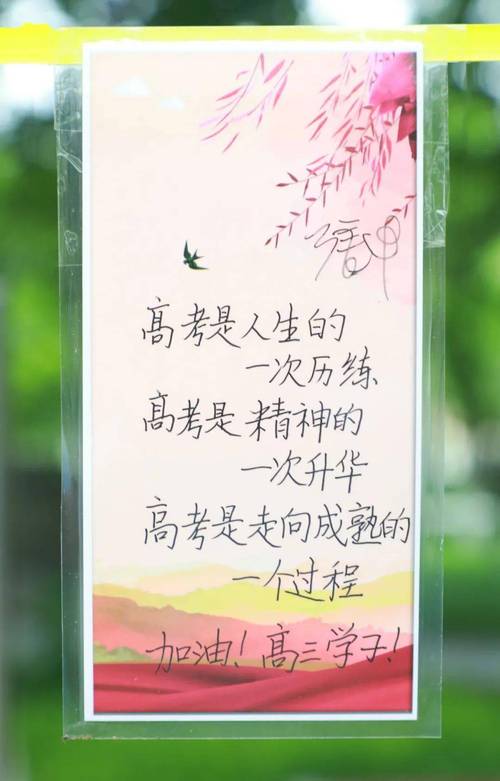 高考是人生的
一次历练
高考是精神的
一次升华
高考是走向成熟的
一个过程
加油！高三学子！